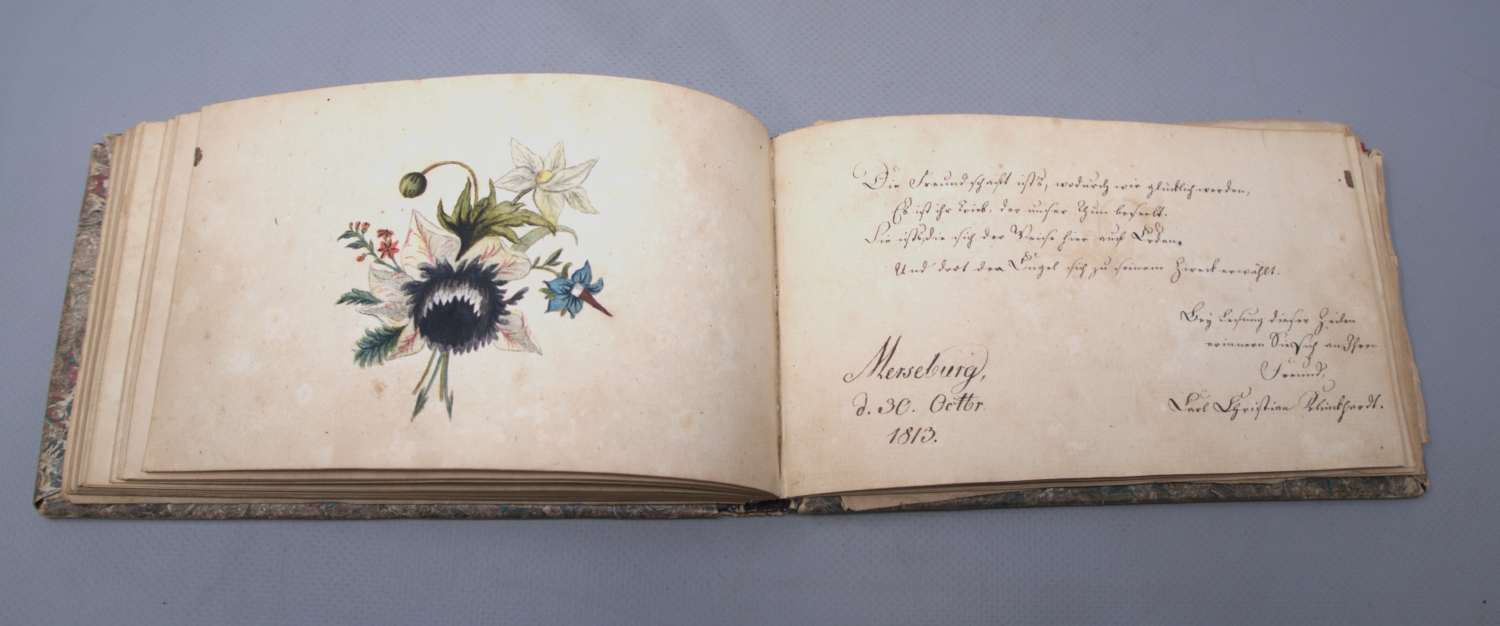 Die Freundschaft ists, wodurch wir glücklich werden,
Es ist ihr Trieb, der unser Thun beseelt.
Sie ists, die sich der Weise hier auf Erden,
Und dort der Engel sich zu seinem Zweck erwählt.
Bey Lesung dieser Zeilen
erinnern Sie sich an Ihren
Freund,
Carl Christian Klinkhardt.
Merseburg,
d. 30. Octbr
1813.